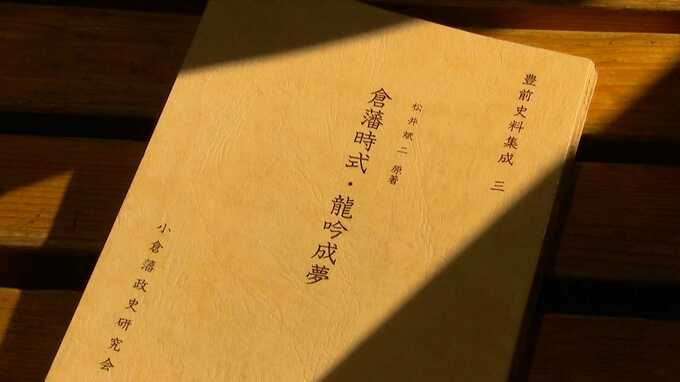 豊前史料集成 三
松井斌二 原著
倉藩時式・龍吟成夢
小倉藩政史研究会